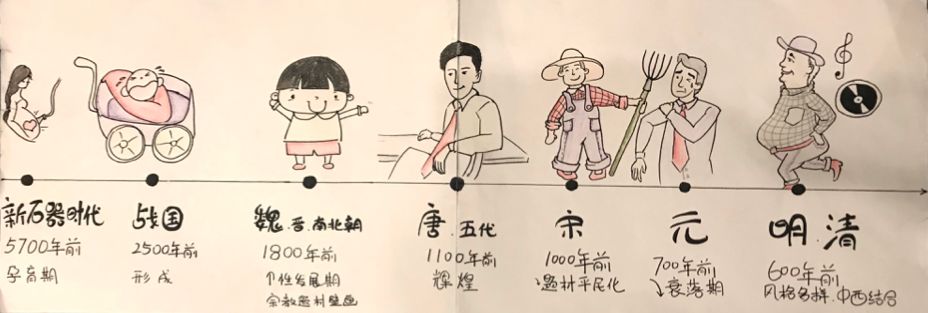 新石器时代
5700年前
孕育期
战国
2500年前
形成
魏.晋.南北朝
1800年前
个性发展期
宗教题材壁画
唐.五代
1100年前
辉煌
宋
1000年前
题材平民化
元
700年前
衰落期
明.清
600年前
风格多样.中西结合